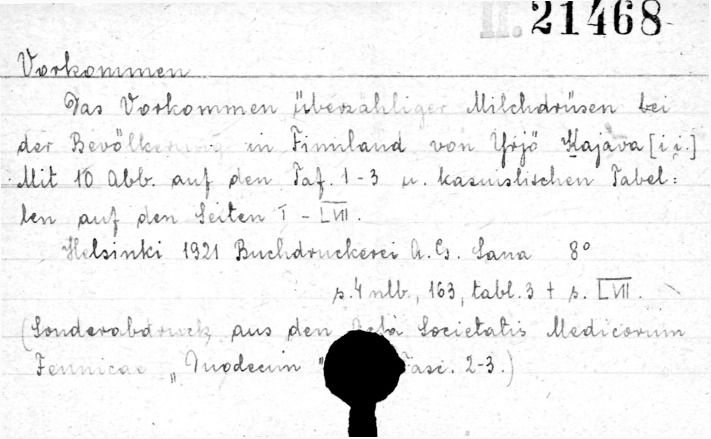 II. 21468
Vorkommen
Das Vorkommen überzähliger Milchdrüsen bei
der Bevölkerung in Finnland von Yrjö Kajava [i.i.]
Mit 10 Abb. auf den Taf. 1-3 u. kasuistischen Tabel=
len auf den Seiten I - LVII.
Helsinki 1921 Buchdruckerei A. G. Sana 8°
s. 4 nlb., 163, tabl. 3 + s. LVII.
(Sonderabdruck aus den Acta Societatis Medicorum
Fennicae „Duodecim" Fasc. 2-3.)